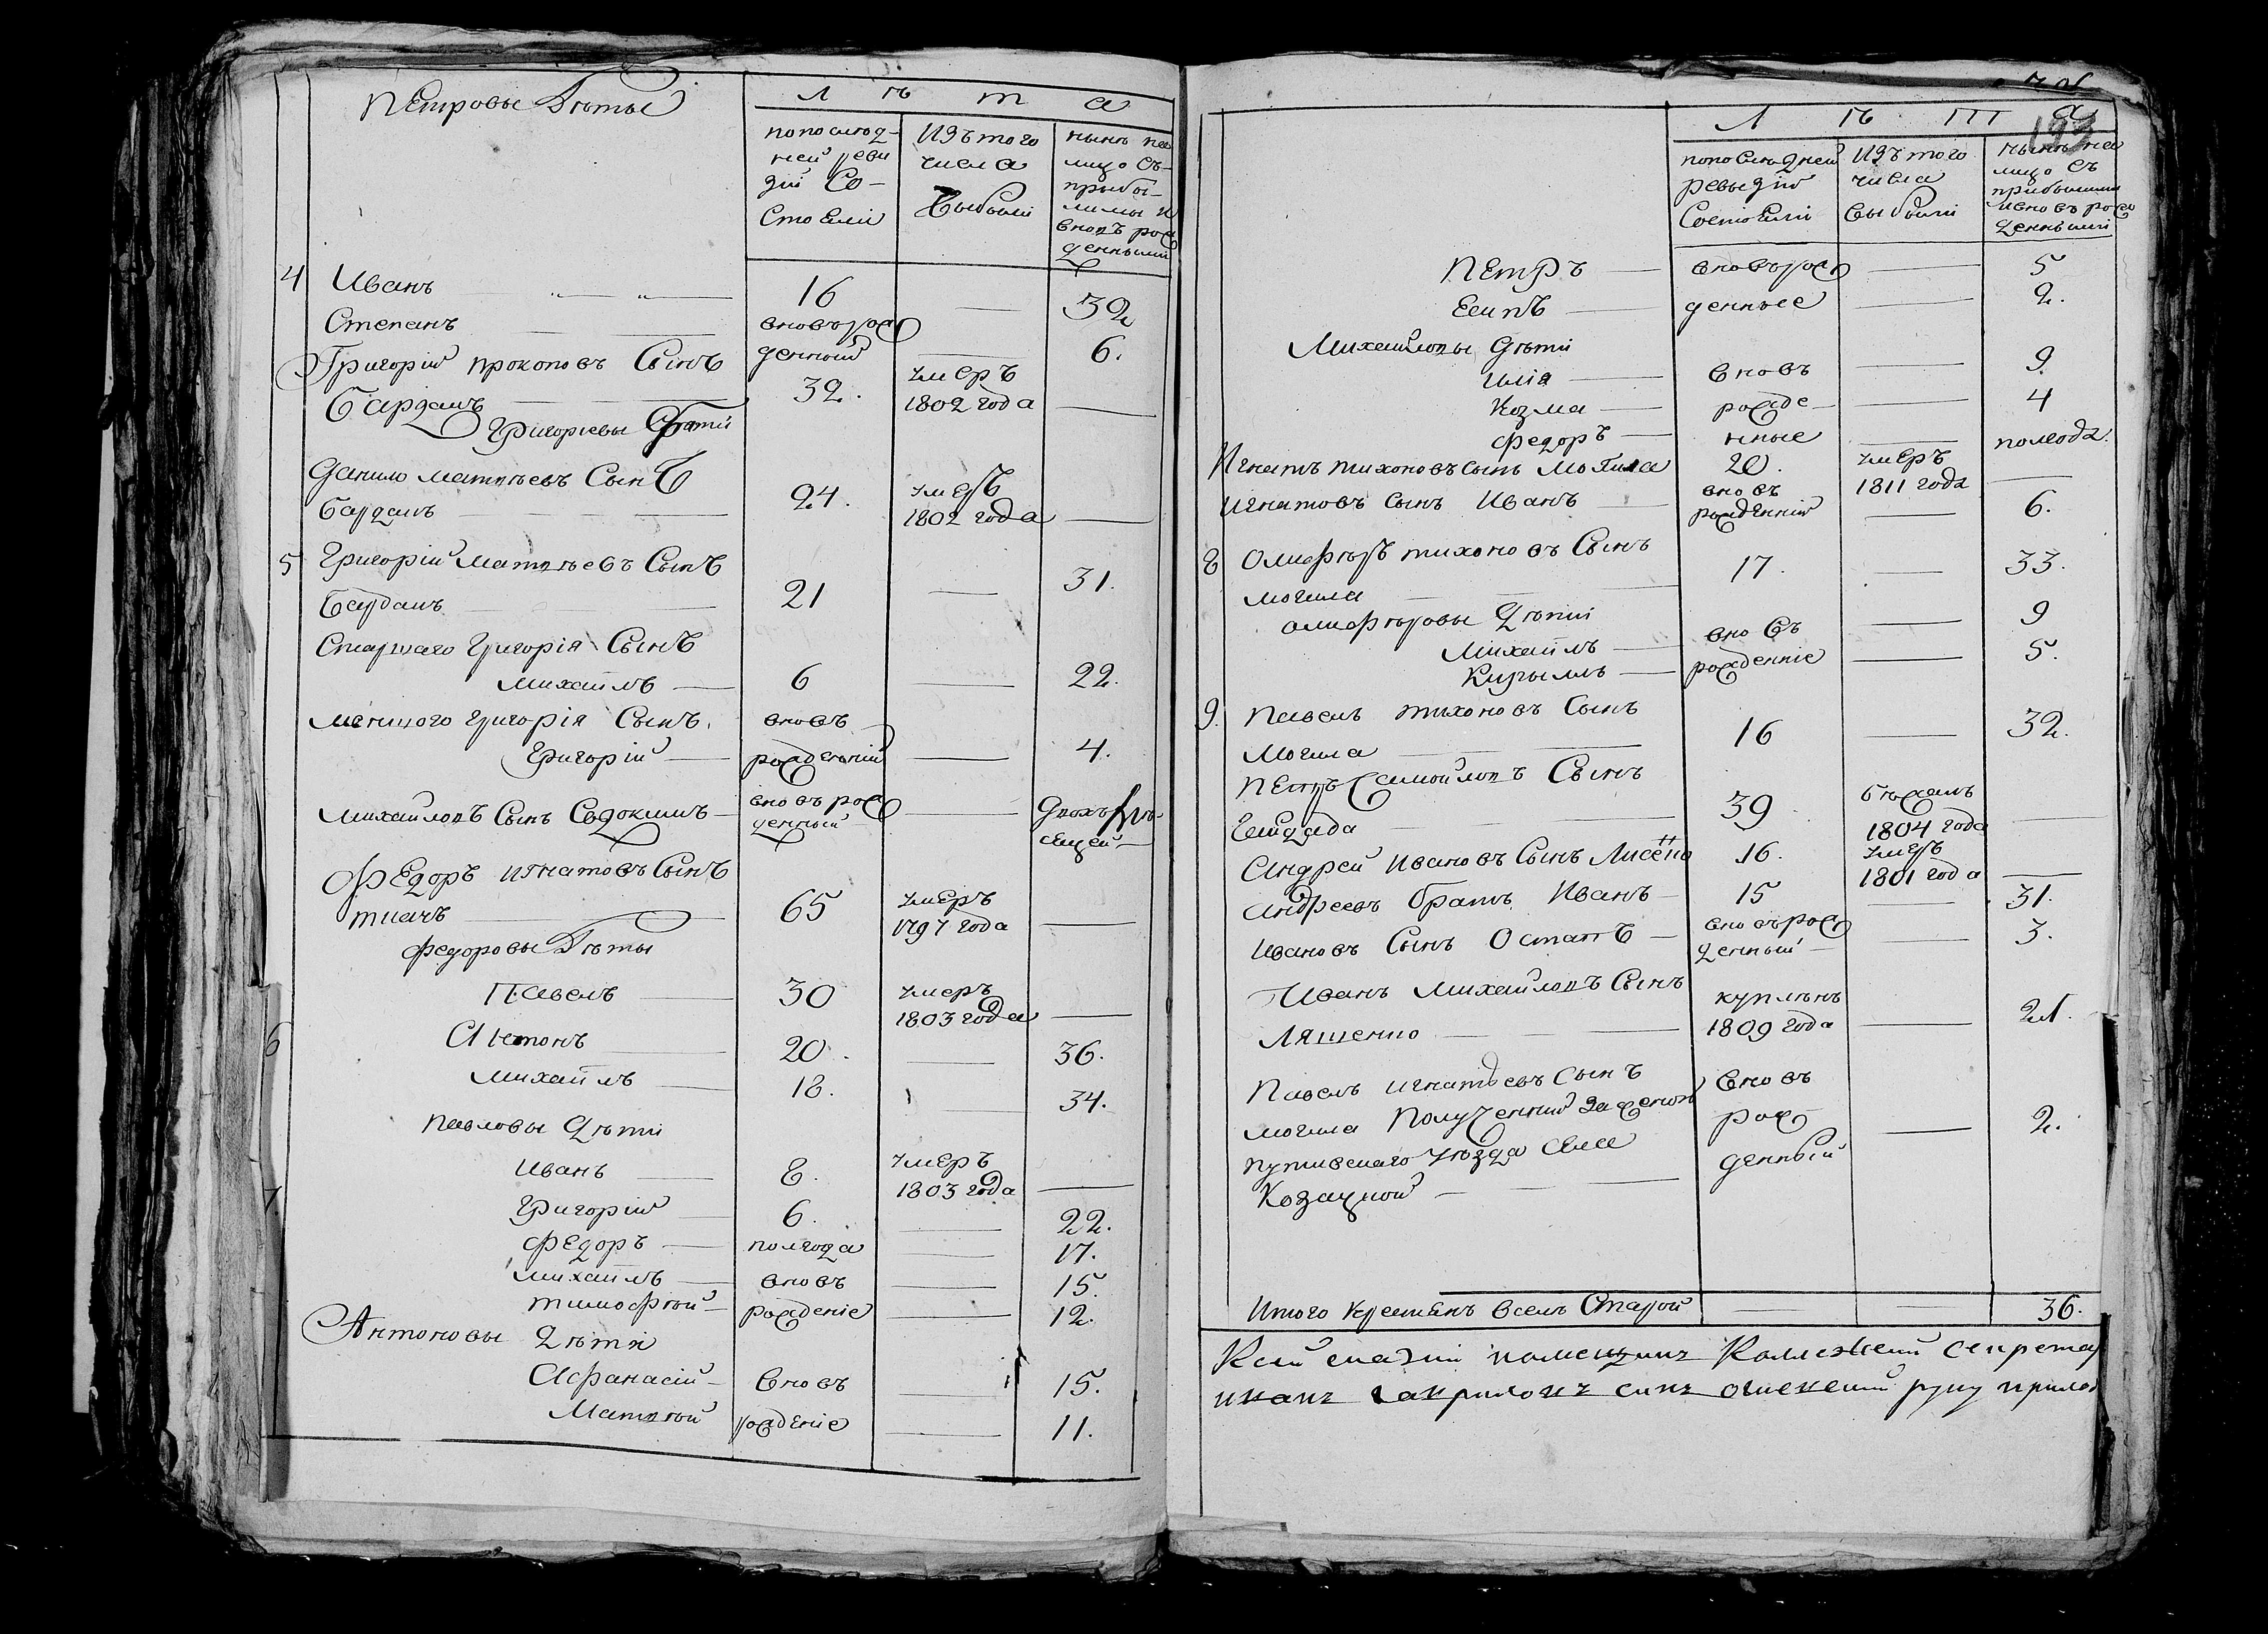 Петровы Дѣты
Л ѣ т а
попослѣд-
ней реви
зіи Со-
стояли
Изътого
числа
Выбыли
нынѣ на
лицо съ-
прыбы-
лымы и
вновъ рож
денными
4 Иванъ 16 — 32
Степанъ вновърож
денный — 6.
Григорій прокоповъ Сынъ
Барданъ 32. умеръ
1802 года —
Григорьевы братіи
Данило матвѣевъ Сынъ
Барданъ 24. умеръ
1802 года —
5 Григорій Матвѣевъ Сынъ
Барданъ 21 — 31.
Старшаго Григорія Сынъ
Михайлъ — 6 — 22.
меншого григорія Сынъ. вновъ
Григорій — рожденній — 4.
Михайловъ Сынъ Евдокимъ — вновърож
денный — Двохъ мѣ-
сяцей —
Федоръ игнатовъ Сынъ
ткачъ 65 умеръ
1797 года —
федоровы Дѣты
Павелъ 30 умеръ
1803 года —
6 Антонъ 20. — 36.
Михайлъ 18. — 34.
Павловы Дѣти
Иванъ — 8. умеръ
1803 года —
7 Григорій — 6. — 22.
Федоръ — полгода — 17.
Михайлъ — вновъ — 15.
тимофѣй — рожденіе — 12.
Антоновы Дѣти
Афанасій — Вновъ — 15.
Матвѣй рожденіе — 11.
193
Л ѣ т а
попослѣдней
ревызіи
Состояли
Изътого
числа
выбыли
нынѣ на
лицо съ
прибылыми
ивновъ рож
денныміи
Петръ — вновърож — 5
Есипъ — денные — 2.
Михайловы Дѣти
илія — вновъ — 9.
Козма — рожде — 4
федоръ — нные — полгода.
Игнатъ тихоновъ сынъ Могила 20. умеръ
1811 года —
игнатовъ сынъ Иванъ вновъ
рожденній — 6.
8 Олифѣръ тихоновъ Сынъ
могила 17. — 33.
олифѣровы Дѣтіи
Михайлъ — вновъ — 9
Кирылъ — рожденніе — 5.
9. Павелъ тихоновъ Сынъ
Могила 16 — 32.
Петръ Самойловъ Сынъ
39 бѣжалъ
1804 года —
Андрей ивановъ Сынъ 16. умеръ
1801 года —
андреевъ братъ Иванъ — 15 — 31.
Ивановъ Сынъ Остапъ — вновърож
денный — 3.
Иванъ Михайловъ Сынъ купленъ
Лященко 1809 года — 21.
Павелъ игнатьевъ Сынъ Вновъ
могила Полученній рож — 2.
путивскаго уѣзда села денный
Козацкой —
Итого крестянъ всемъ Старой — — 36.
Ксей сказки помещикъ Коллежский секретар
иванъ гавриловъ синъ руку прилож